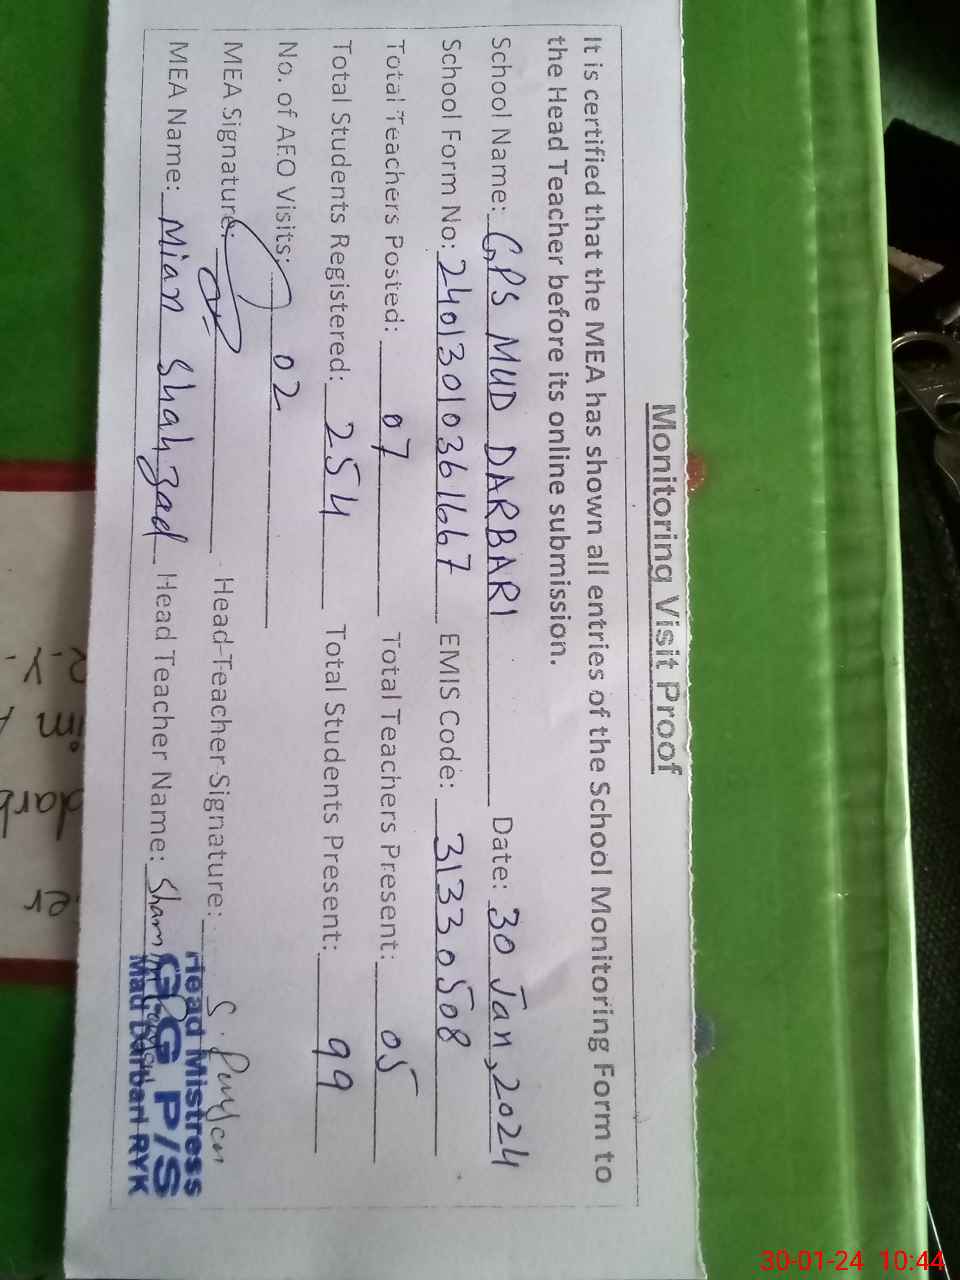 Monitoring Visit Proof
It is certified that the MEA has shown all entries of the School Monitoring Form to
the Head Teacher before its online submission.
School Name: G.PS MUD DARBARI Date: 30 Jan, 2024
School Form No: 24013010361667 EMIS Code: 31330508
Total Teachers Posted: 07 Total Teachers Present: 05
Total Students Registered: 254 Total Students Present: 99
No. of AEO Visits: 02
MEA Signature: Head Teacher Signature: S. Perveen
MEA Name: Mian Shahzad Head Teacher Name:
Head Mistress
G G P/S
Mud Darbari RYK
R.Y.
darb
er
30-01-24 10:44